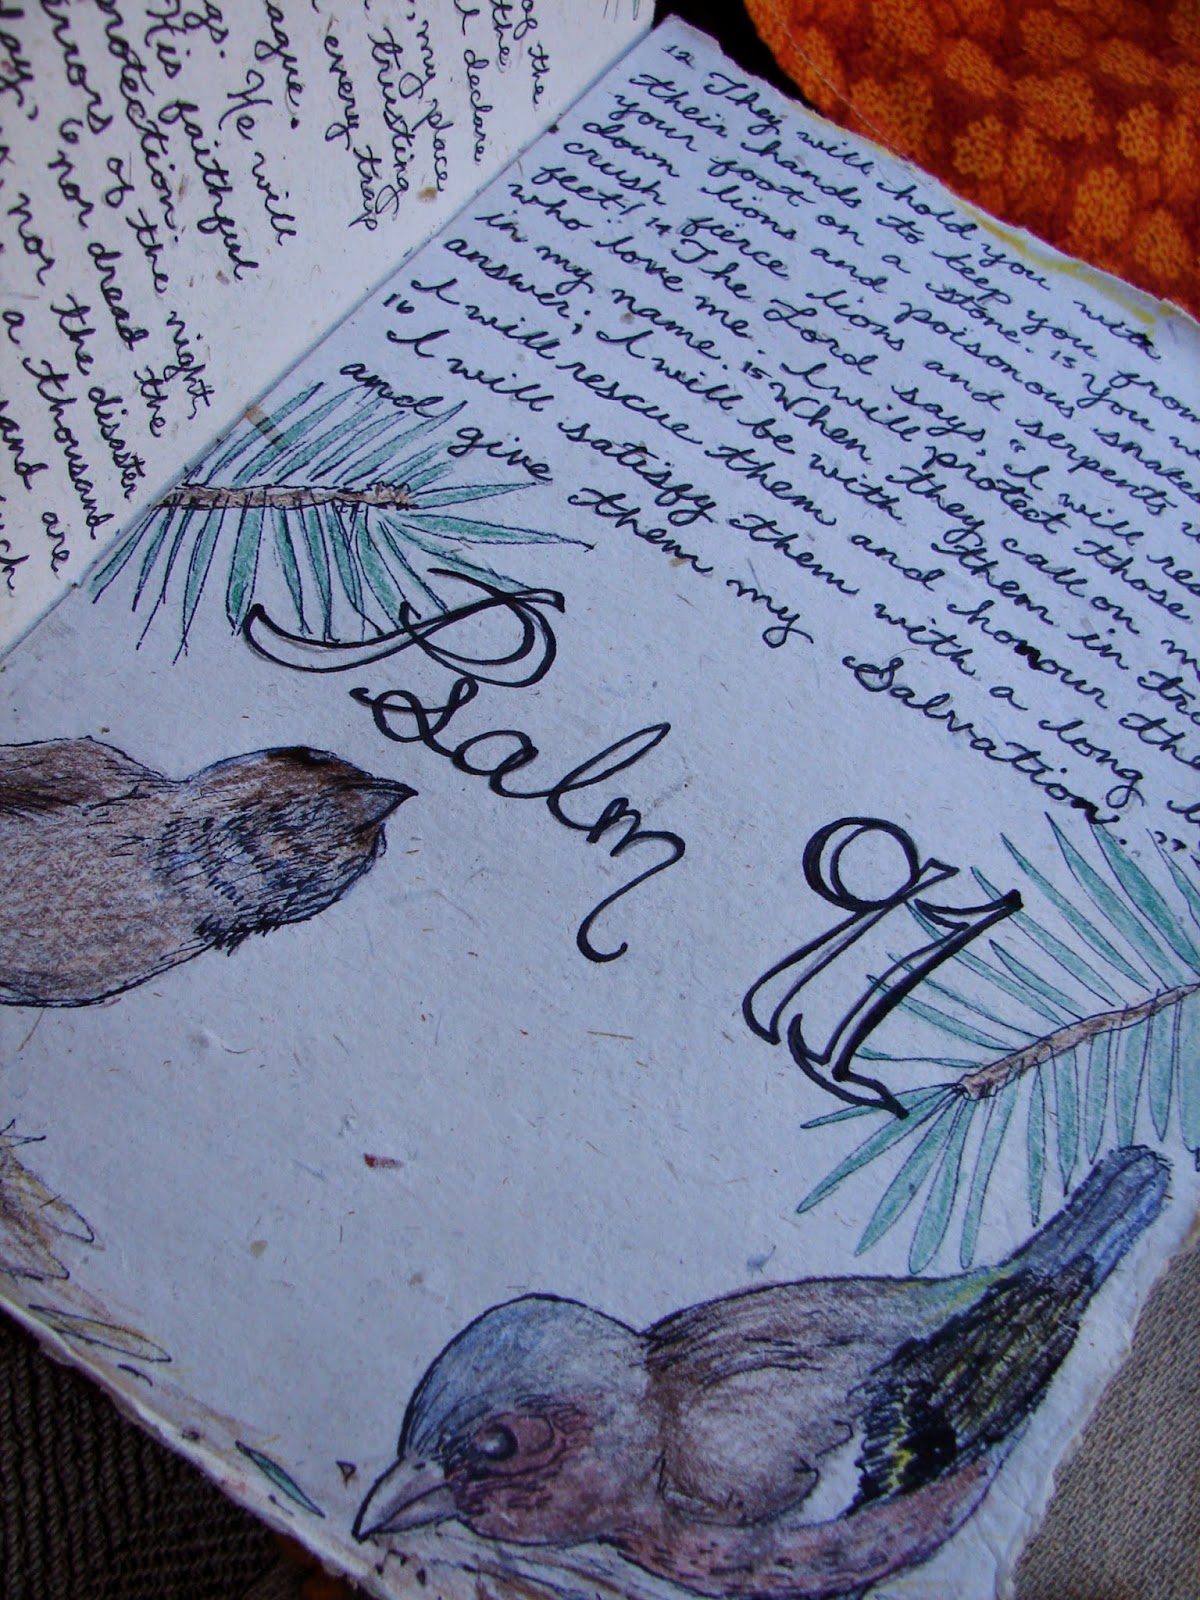 of the
the
I declare
my place
trusting
every trap
ague.
gs. He will
His faithful
protection.
of the night,
day, 6 nor dread the
nor the disaster
a thousand
and are
12 They will hold you with
their hands to keep you from
your foot on a stone. 15 You
down lions and poisonous snakes
crush fierce lions and serpents
feet! 14 The Lord says, "I will
who love me. I will protect those
in my name. 15 When they call on
answer; I will be with them in
I will rescue them and honour
16 I will satisfy them with a long
and give them my Salvation.."
Psalm 91